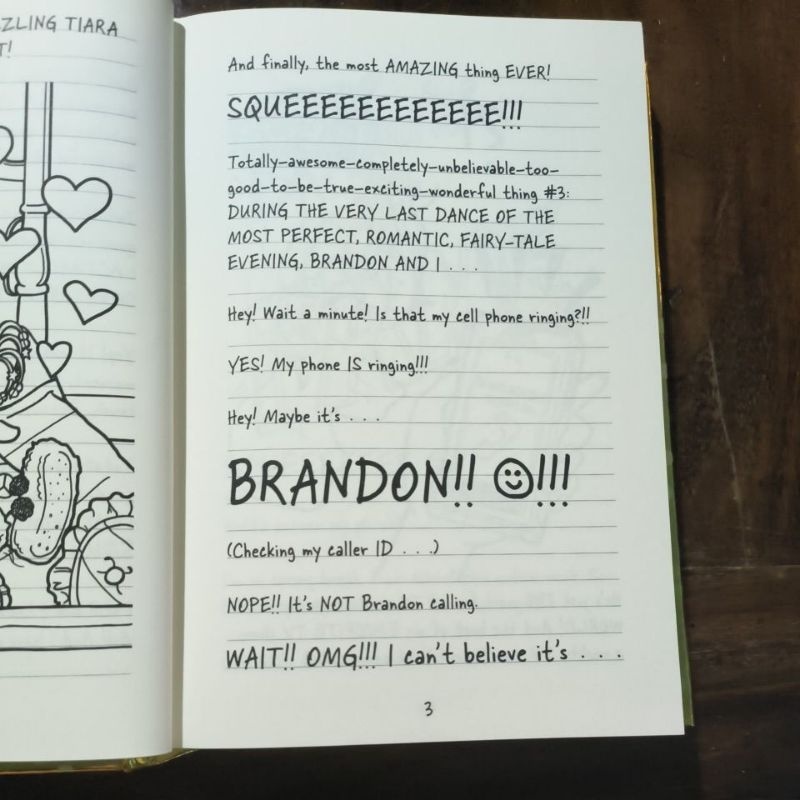 ZLING TIARA
T!
And finally, the most AMAZING thing EVER!
SQUEEEEEEEEEEEE!!!
Totally-awesome-completely-unbelievable-too-
good-to-be-true-exciting-wonderful thing #3:
DURING THE VERY LAST DANCE OF THE
MOST PERFECT, ROMANTIC, FAIRY-TALE
EVENING, BRANDON AND I . . .
Hey! Wait a minute! Is that my cell phone ringing?!!
YES! My phone IS ringing!!!
Hey! Maybe it's . . .
BRANDON!! ☺!!!
(Checking my caller ID . . .)
NOPE!! It's NOT Brandon calling.
WAIT!! OMG!!! I can't believe it's . . .
3